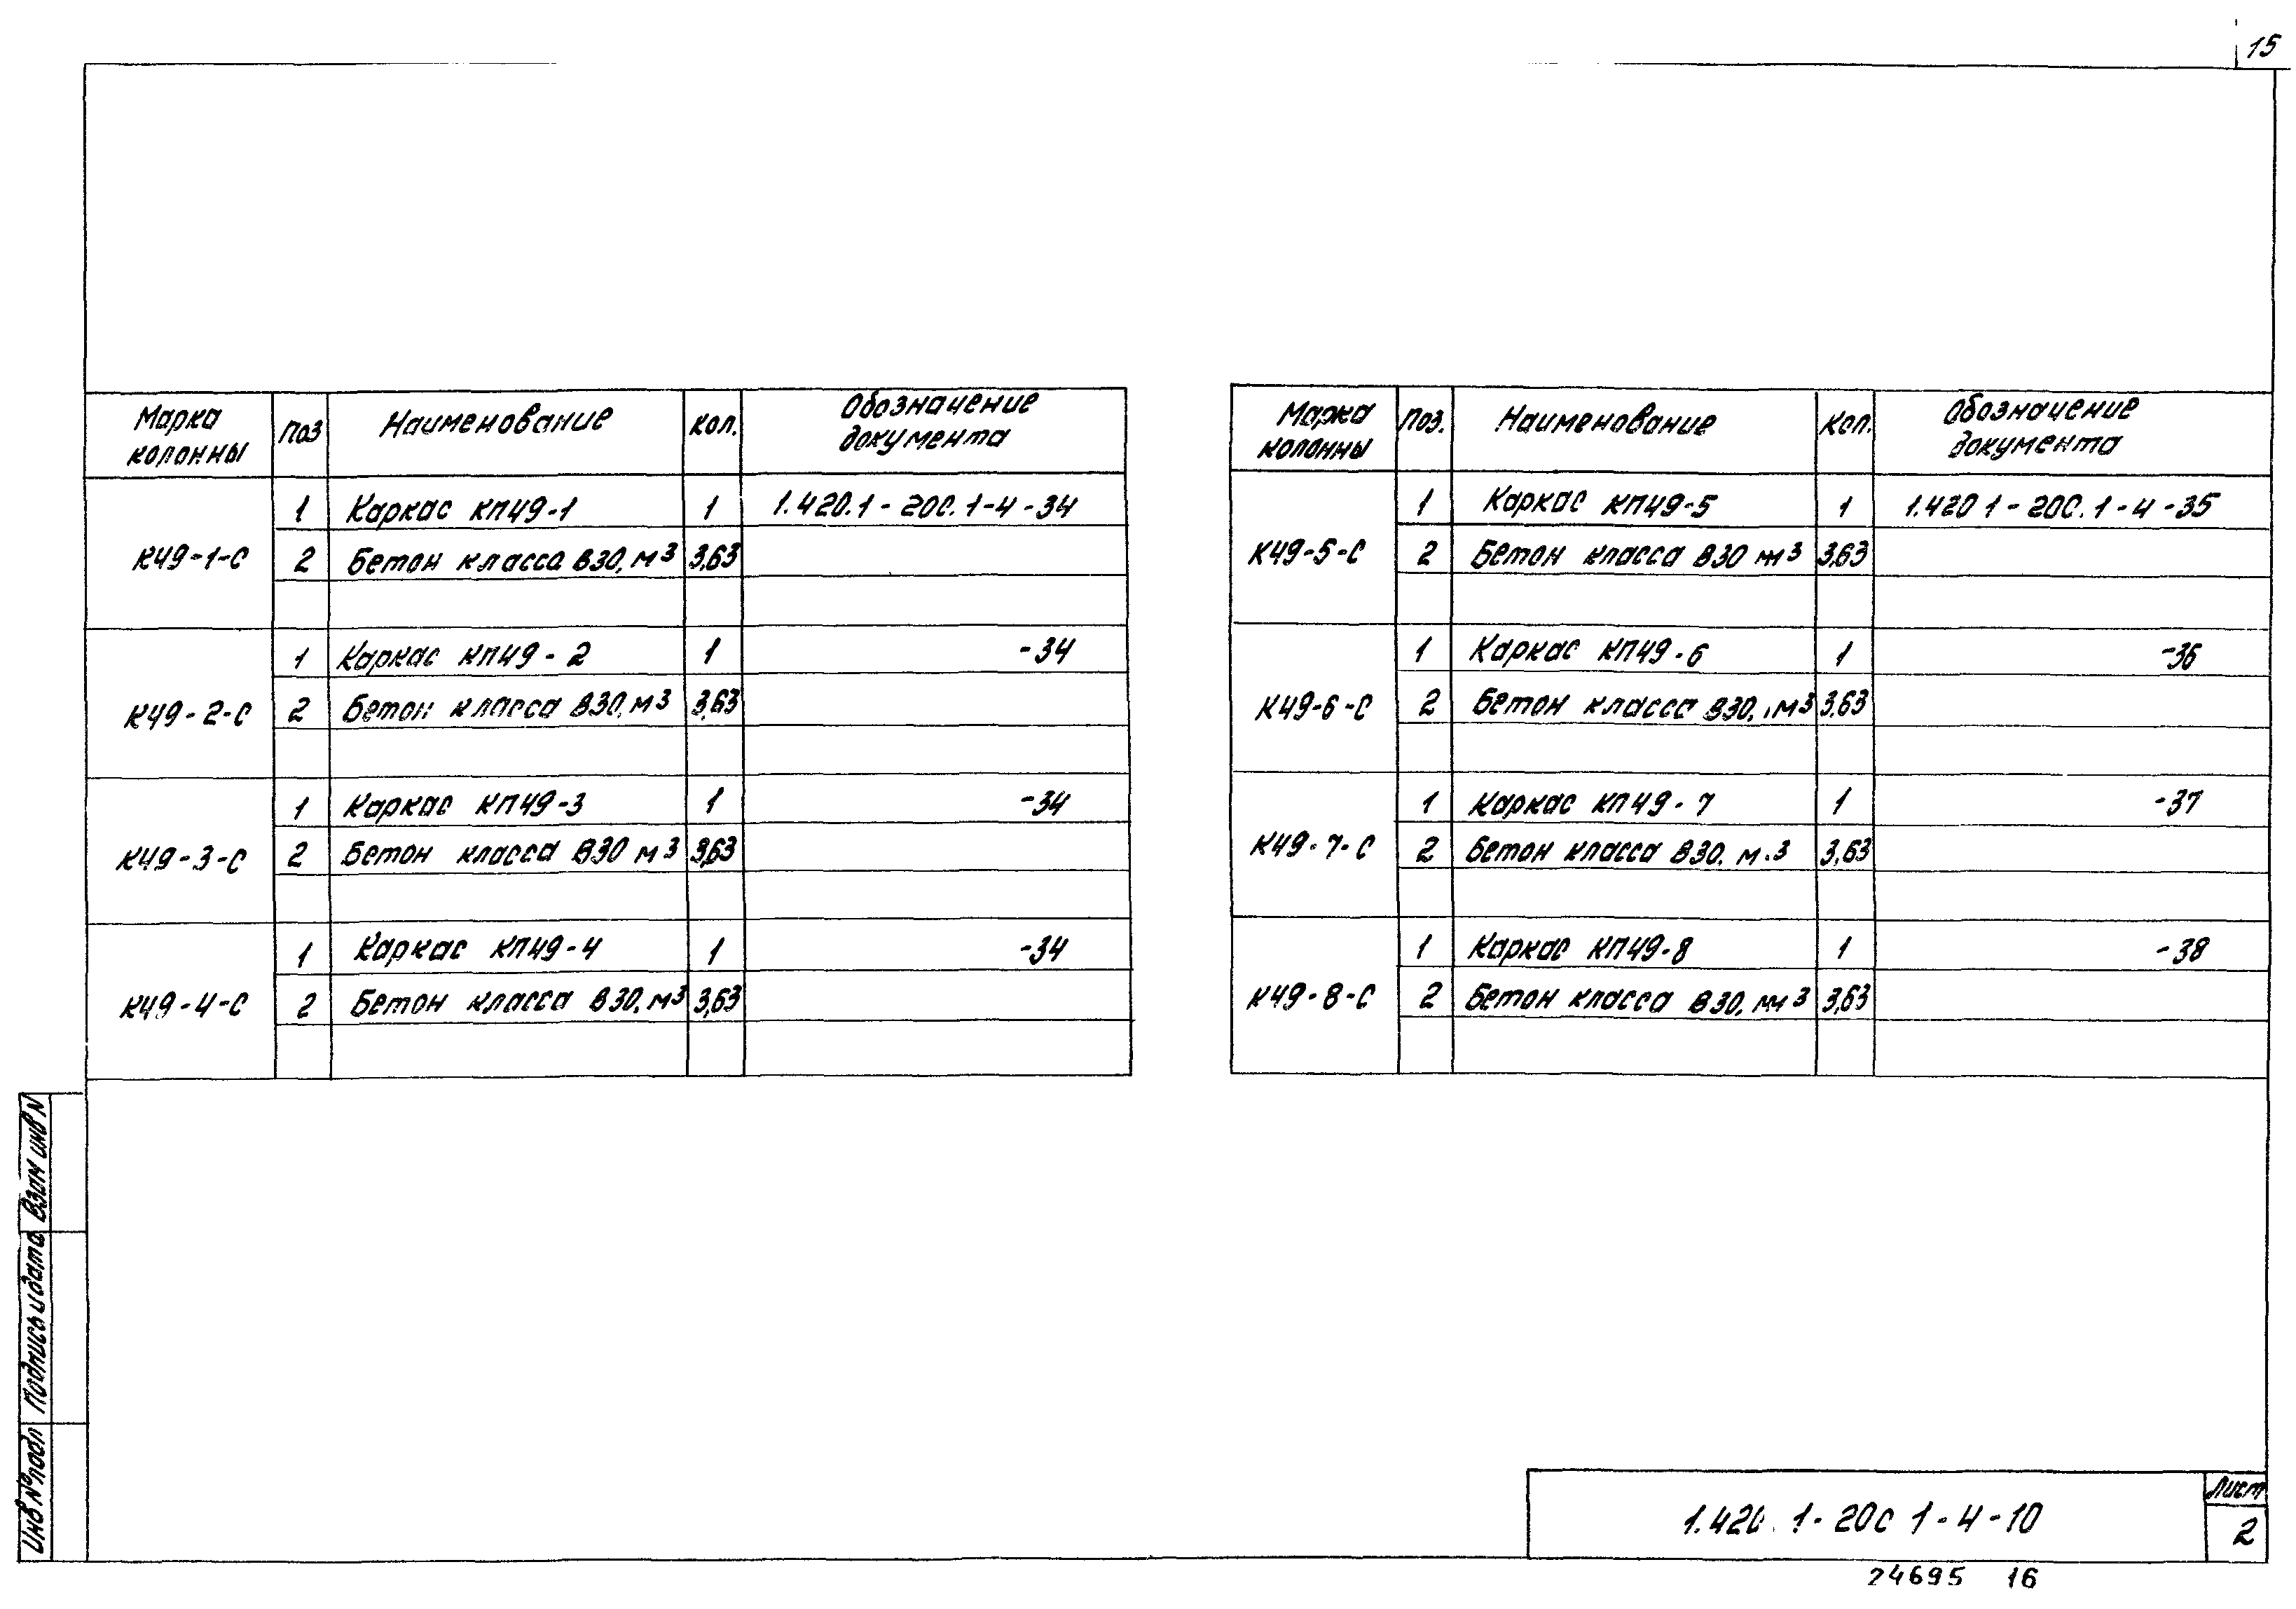 15
Марка колонны | Поз | Наименование | Кол. | Обозначение документа
К49-1-С | 1 | Каркас КП49-1 | 1 | 1.420.1-20С.1-4-34
2 | Бетон класса В30, м³ | 3,63
К49-2-С | 1 | Каркас КП49-2 | 1 | -34
2 | Бетон класса В30, м³ | 3,63
К49-3-С | 1 | Каркас КП49-3 | 1 | -34
2 | Бетон класса В30 м³ | 3,63
К49-4-С | 1 | Каркас КП49-4 | 1 | -34
2 | Бетон класса В30, м³ | 3,63
Марка колонны | Поз. | Наименование | Кол. | Обозначение документа
К49-5-С | 1 | Каркас КП49-5 | 1 | 1.420 1-20С.1-4-35
2 | Бетон класса В30 м³ | 3,63
К49-6-С | 1 | Каркас КП49-6 | 1 | -36
2 | Бетон класса В30, м³ | 3,63
К49-7-С | 1 | Каркас КП49-7 | 1 | -37
2 | Бетон класса В30, м³ | 3,63
К49-8-С | 1 | Каркас КП49-8 | 1 | -38
2 | Бетон класса В30, м³ | 3,63
Взам инв N
Подпись и дата
Инв № подл
1.420.1-20С 1-4-10
Лист
2
24695 16